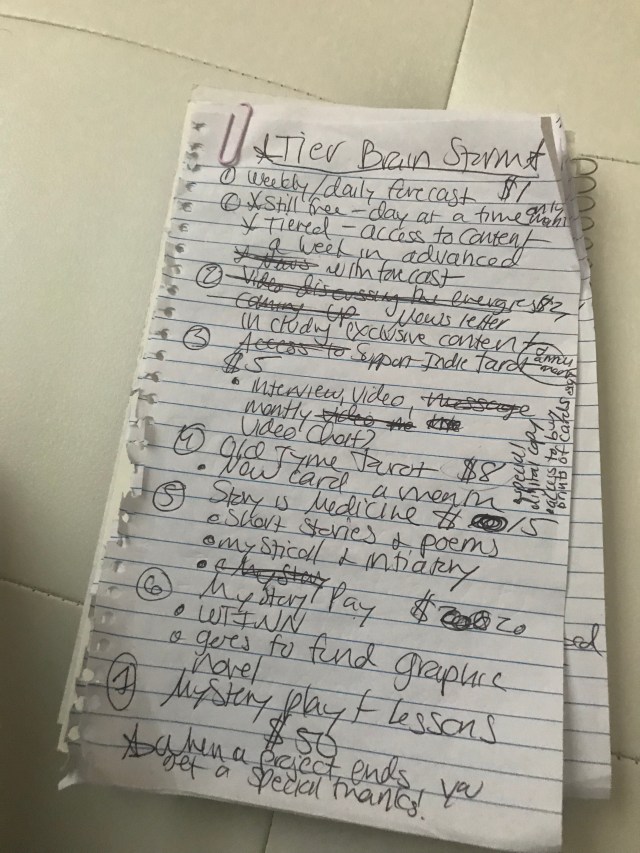 *Tier Brain Storm*
① Weekly/daily forecast $1
② *Still free - day at a time only
*Tiered - access to content
a week in advanced
with forcast
② Video discussing the energies $2
Coming up News letter
includiy exclusive content
③ Access to Support Indie tarot
$5
• Interview, video, message
montly video
Video Chat?
④ Old Tyme Tarot $8
• New card a month
special
digital copy
access to buy
prints of cards
⑤ Story is Medicine $ 15
• Short stories & poems
• mysticall & initiatry
• a My story
⑥ Mystery Play $ 20
• WTFWN
• goes to fund graphic
novel
⑦ Mystery play + lessons
$50
*When a project ends you
get a special thanks!
sed